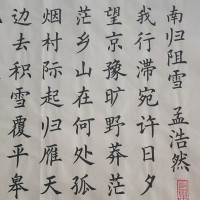 南归阻雪 孟浩然
我行滞宛许日夕
望京豫旷野莽茫
茫乡山在何处孤
烟村际起归雁天
边去积雪覆平皋